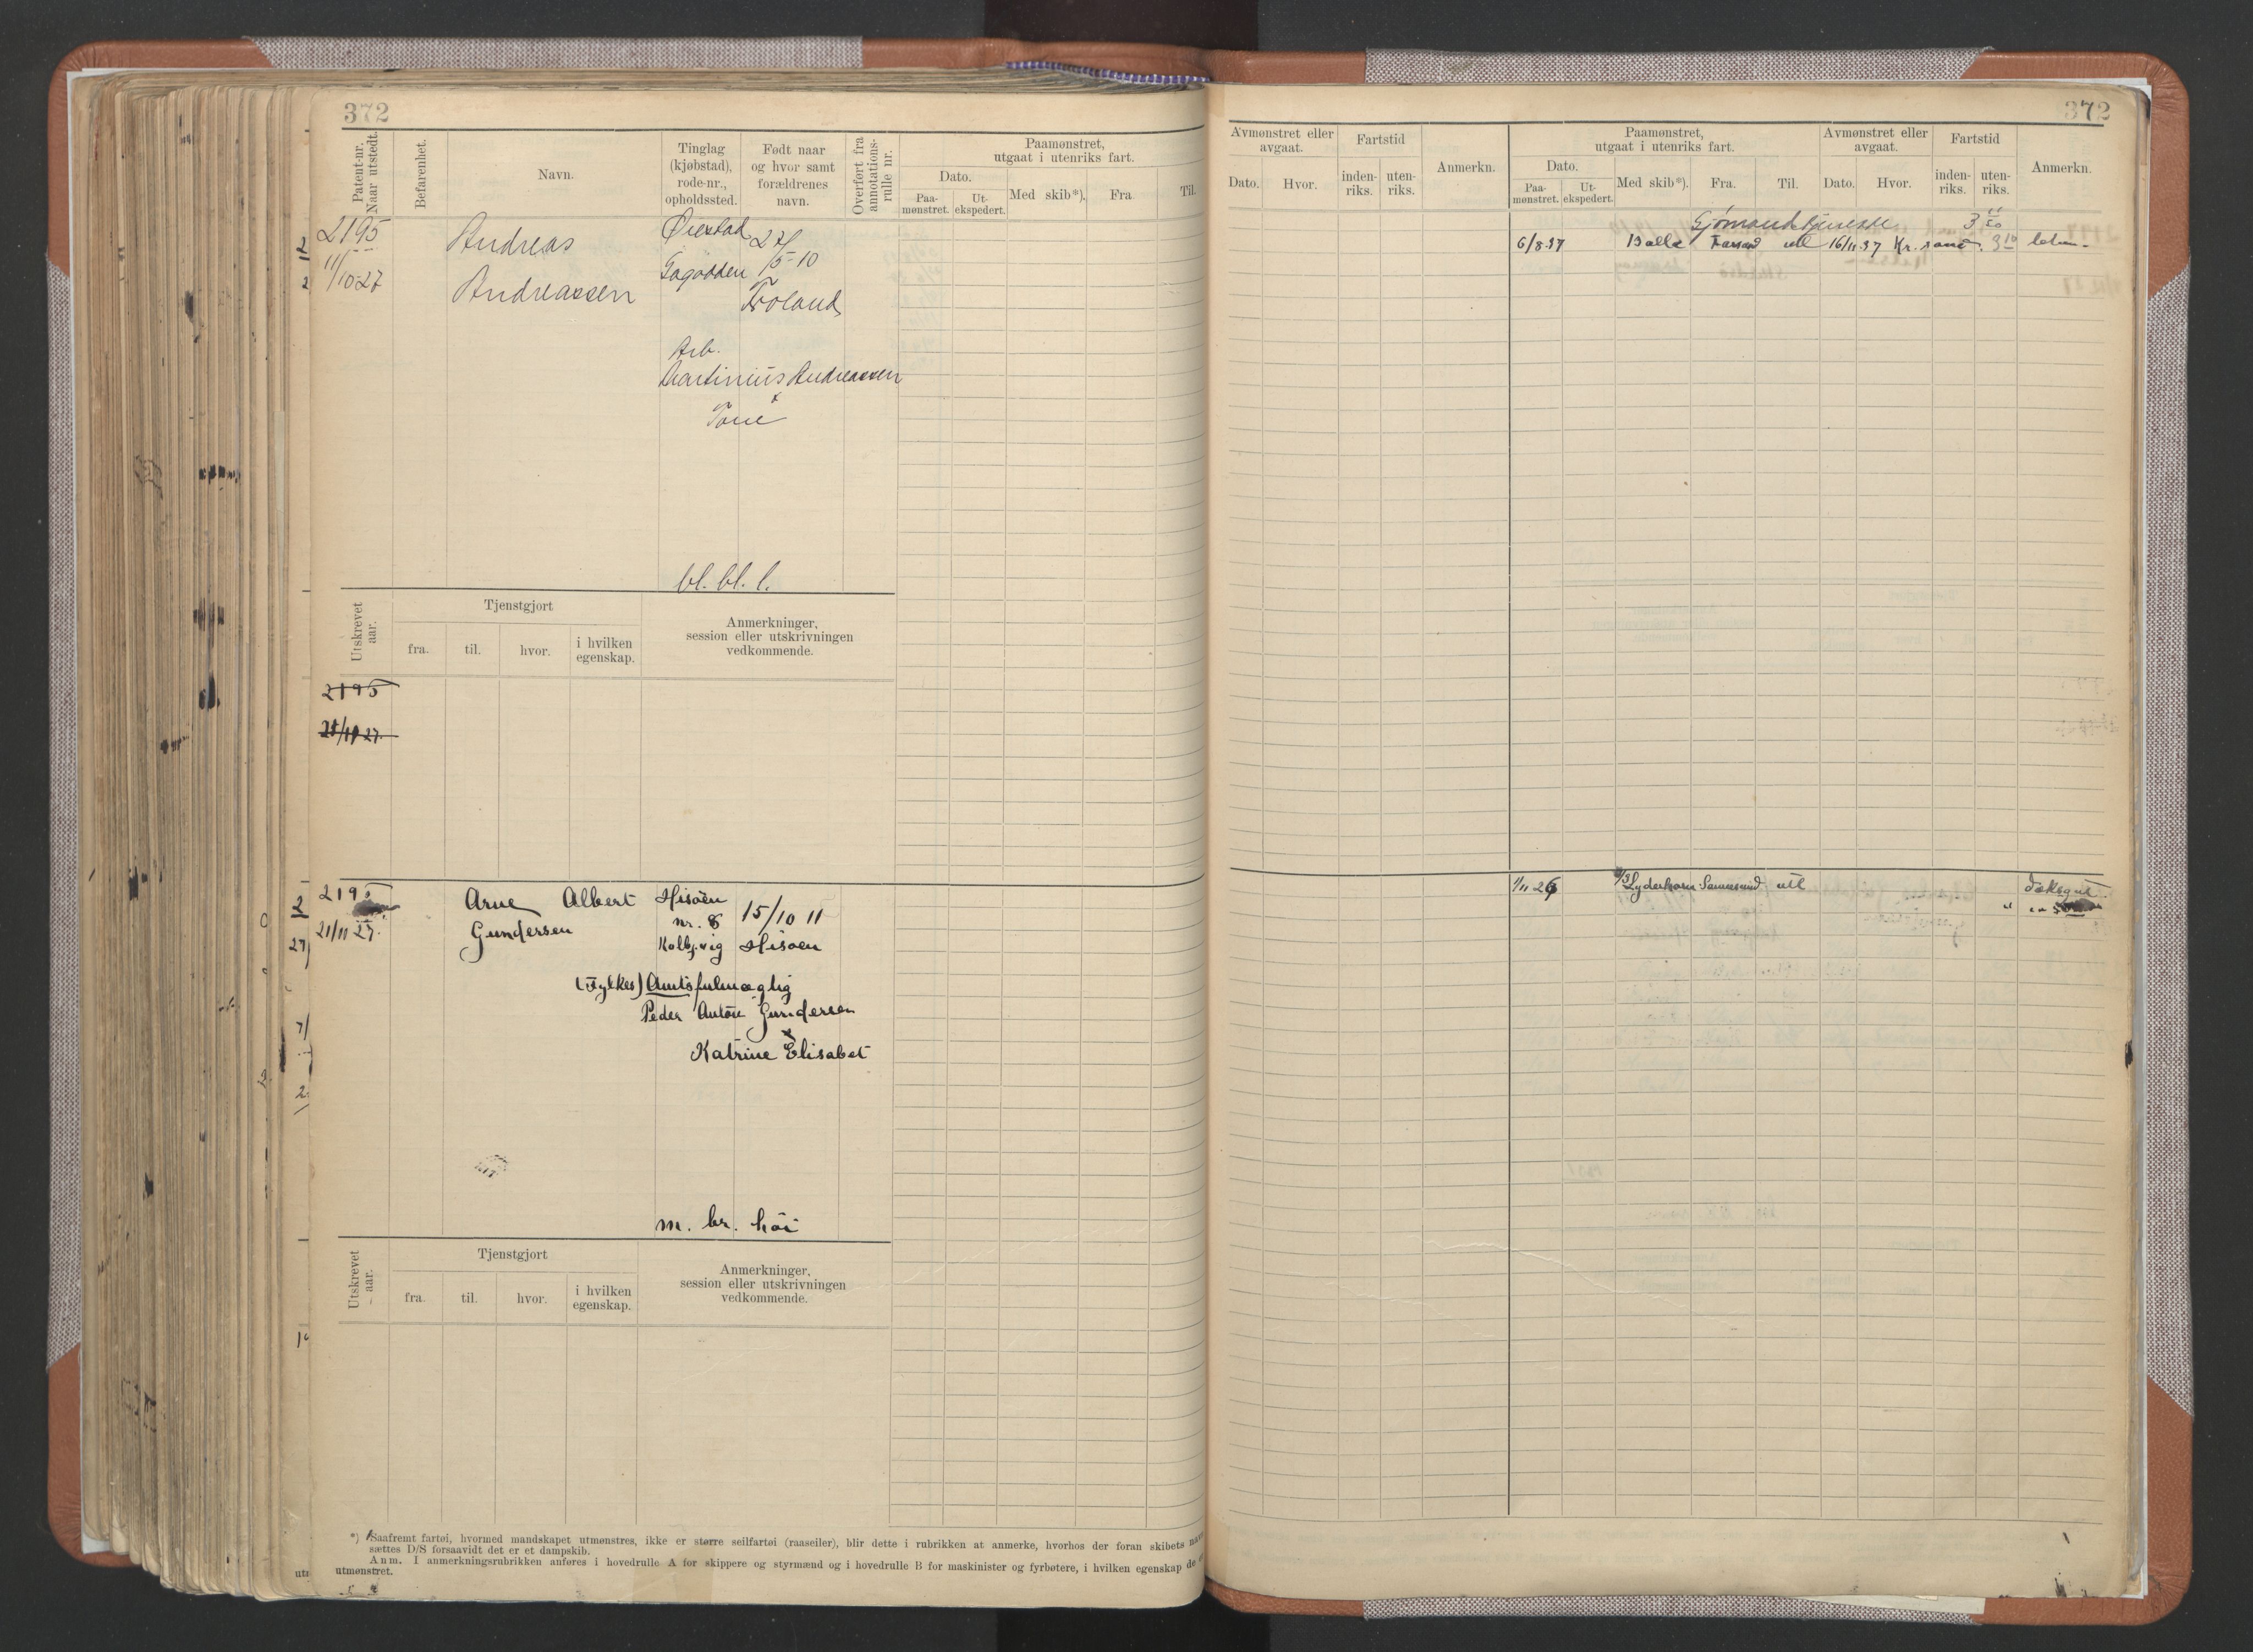 372
Patent-nr.
Naar utstedt.
Befarenhet.
Navn.
Tinglag
(kjøbstad),
rode-nr.,
opholdssted.
Født naar
og hvor samt
forældrenes
navn.
Overført fra
annotations-
rulle nr.
Paamønstret,
utgaat i utenriks fart.
Dato.
Paa-
mønstret.
Ut-
ekspedert.
Med skib*).
Fra.
Til.
2195
11/10-27
Andreas
Andreassen
Øiestad
27/5-10
Froland
Arb.
Martinius Andreassen
x
Tone
bl. bl. l.
Utskrevet
aar.
Tjenstgjort
fra.
til.
hvor.
i hvilken
egenskap.
Anmerkninger,
session eller utskrivningen
vedkommende.
2195
2195
21/11 27.
Arne Albert
Gundersen
Hisöen
nr. 8
Kolbj.vig
15/10 11
Hisöen
(Fylkes) Amtsfulmægtig
Peder Anton Gundersen
x
Katrine Elisabet
m. br. höi
Utskrevet
aar.
Tjenstgjort
fra.
til.
hvor.
i hvilken
egenskap.
Anmerkninger,
session eller utskrivningen
vedkommende.
*) Saafremt fartøi, hvormed mandskapet utmønstres, ikke er større seilfartøi (raaseiler), blir dette i rubrikken at anmerke, hvorhos der foran skibets navn
sættes D/S forsaavidt det er et dampskib.
Anm. I anmerkningsrubrikken anføres i hovedrulle A for skippere og styrmænd og i hovedrulle B for maskinister og fyrbøtere, i hvilken egenskap de
utmønstret.
372
Avmønstret eller
avgaat.
Dato.
Hvor.
Fartstid
inden-
riks.
uten-
riks.
Anmerkn.
Paamønstret,
utgaat i utenriks fart.
Dato.
Paa-
mønstret.
Ut-
ekspedert.
Med skib*).
Fra.
Til.
Avmønstret eller
avgaat.
Dato.
Hvor.
Fartstid
inden-
riks.
uten-
riks.
Anmerkn.
6/8 37 Balla utl 16/11 37 Kr. sand
1/11 26 Lyderhorn utl dæksgut